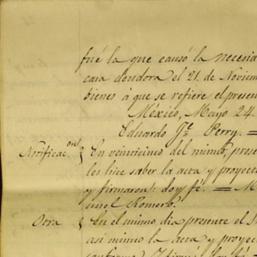 fué la que causó la necesaria
casa deudora del 21. de Noviem
bienes á que se refiere el present
México, Mayo 24.
Eduardo Gª Perry. =
Notificaⁿ } En veintiseis del mismo, prese
les hice saber la acta y proyec
y firmaron: doy fé. = M
cinel Romero.
Otra { En el mismo dia presente el S
asi mismo la acta y proyec